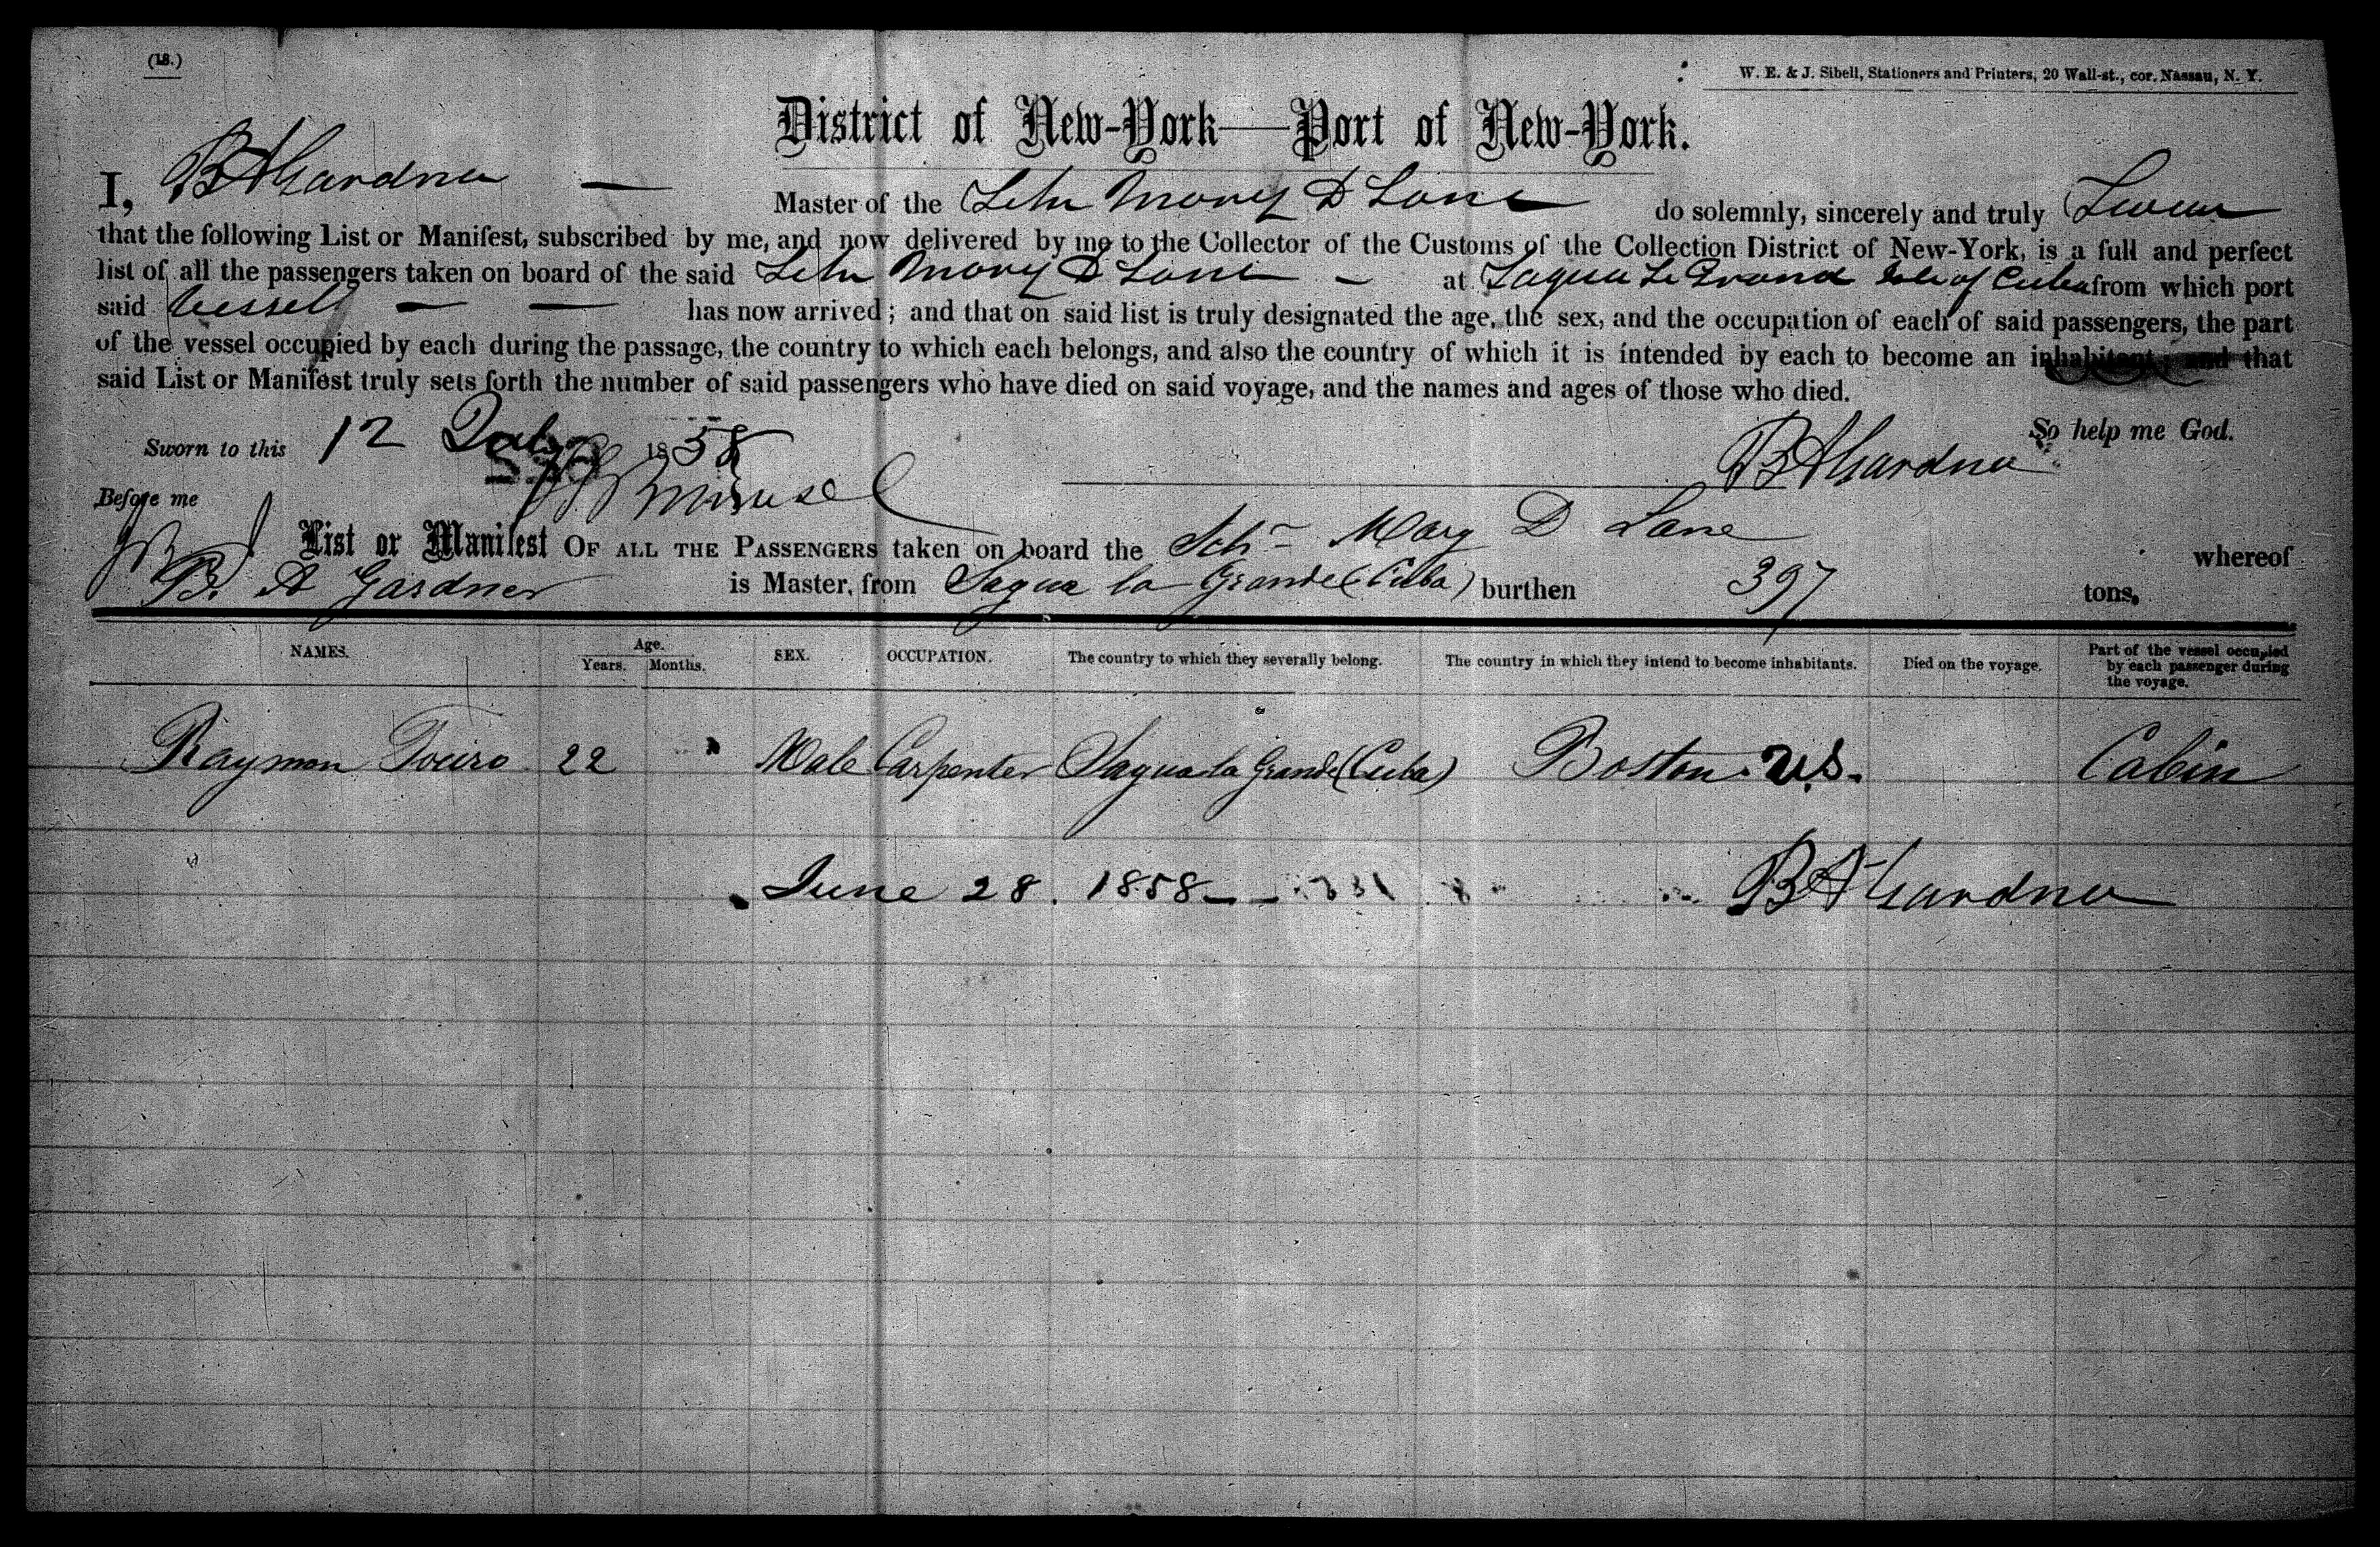 (18.)
W. E. & J. Sibell, Stationers and Printers, 20 Wall-st., cor. Nassau, N. Y.
District of New-York—Port of New-York.
I, B A Gardner — Master of the Schr Mary D Lane do solemnly, sincerely and truly Swear
that the following List or Manifest, subscribed by me, and now delivered by me to the Collector of the Customs of the Collection District of New-York, is a full and perfect
list of all the passengers taken on board of the said Schr Mary D Lane — at Sagua Le Grand Isle of Cuba from which port
said Vessell — — has now arrived; and that on said list is truly designated the age, the sex, and the occupation of each of said passengers, the part
of the vessel occupied by each during the passage, the country to which each belongs, and also the country of which it is intended by each to become an inhabitant; and that
said List or Manifest truly sets forth the number of said passengers who have died on said voyage, and the names and ages of those who died.
So help me God.
Sworn to this 12 July 1858
B A Gardner
Before me
List or Manifest OF ALL THE PASSENGERS taken on board the Schr Mary D Lane whereof
B. A Gardner is Master, from Sagua la Grande (Cuba) burthen 397 tons.
NAMES. Age. Years. Months. SEX. OCCUPATION. The country to which they severally belong. The country in which they intend to become inhabitants. Died on the voyage. Part of the vessel occupied by each passenger during the voyage.
Raymon Touro 22 Male Carpenter Sagua la Grande (Cuba) Boston. U.S. Cabin
June 28. 1858 — — B A Gardner